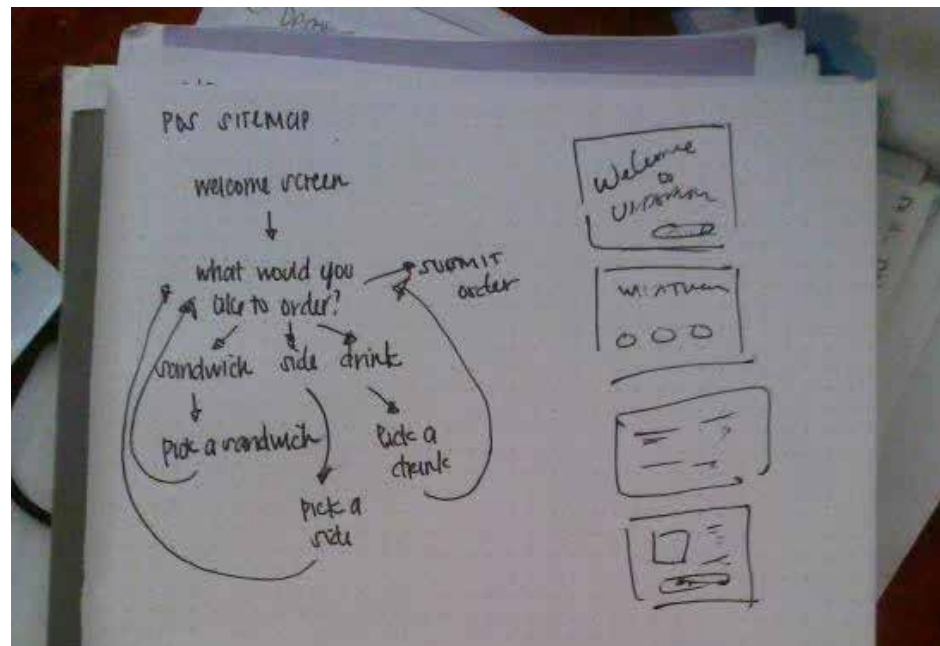 POS SITEMAP
welcome screen
what would you
like to order?
SUBMIT
order
sandwich side drink
pick a sandwich
Pick a
drink
pick a
side
Welcome
to